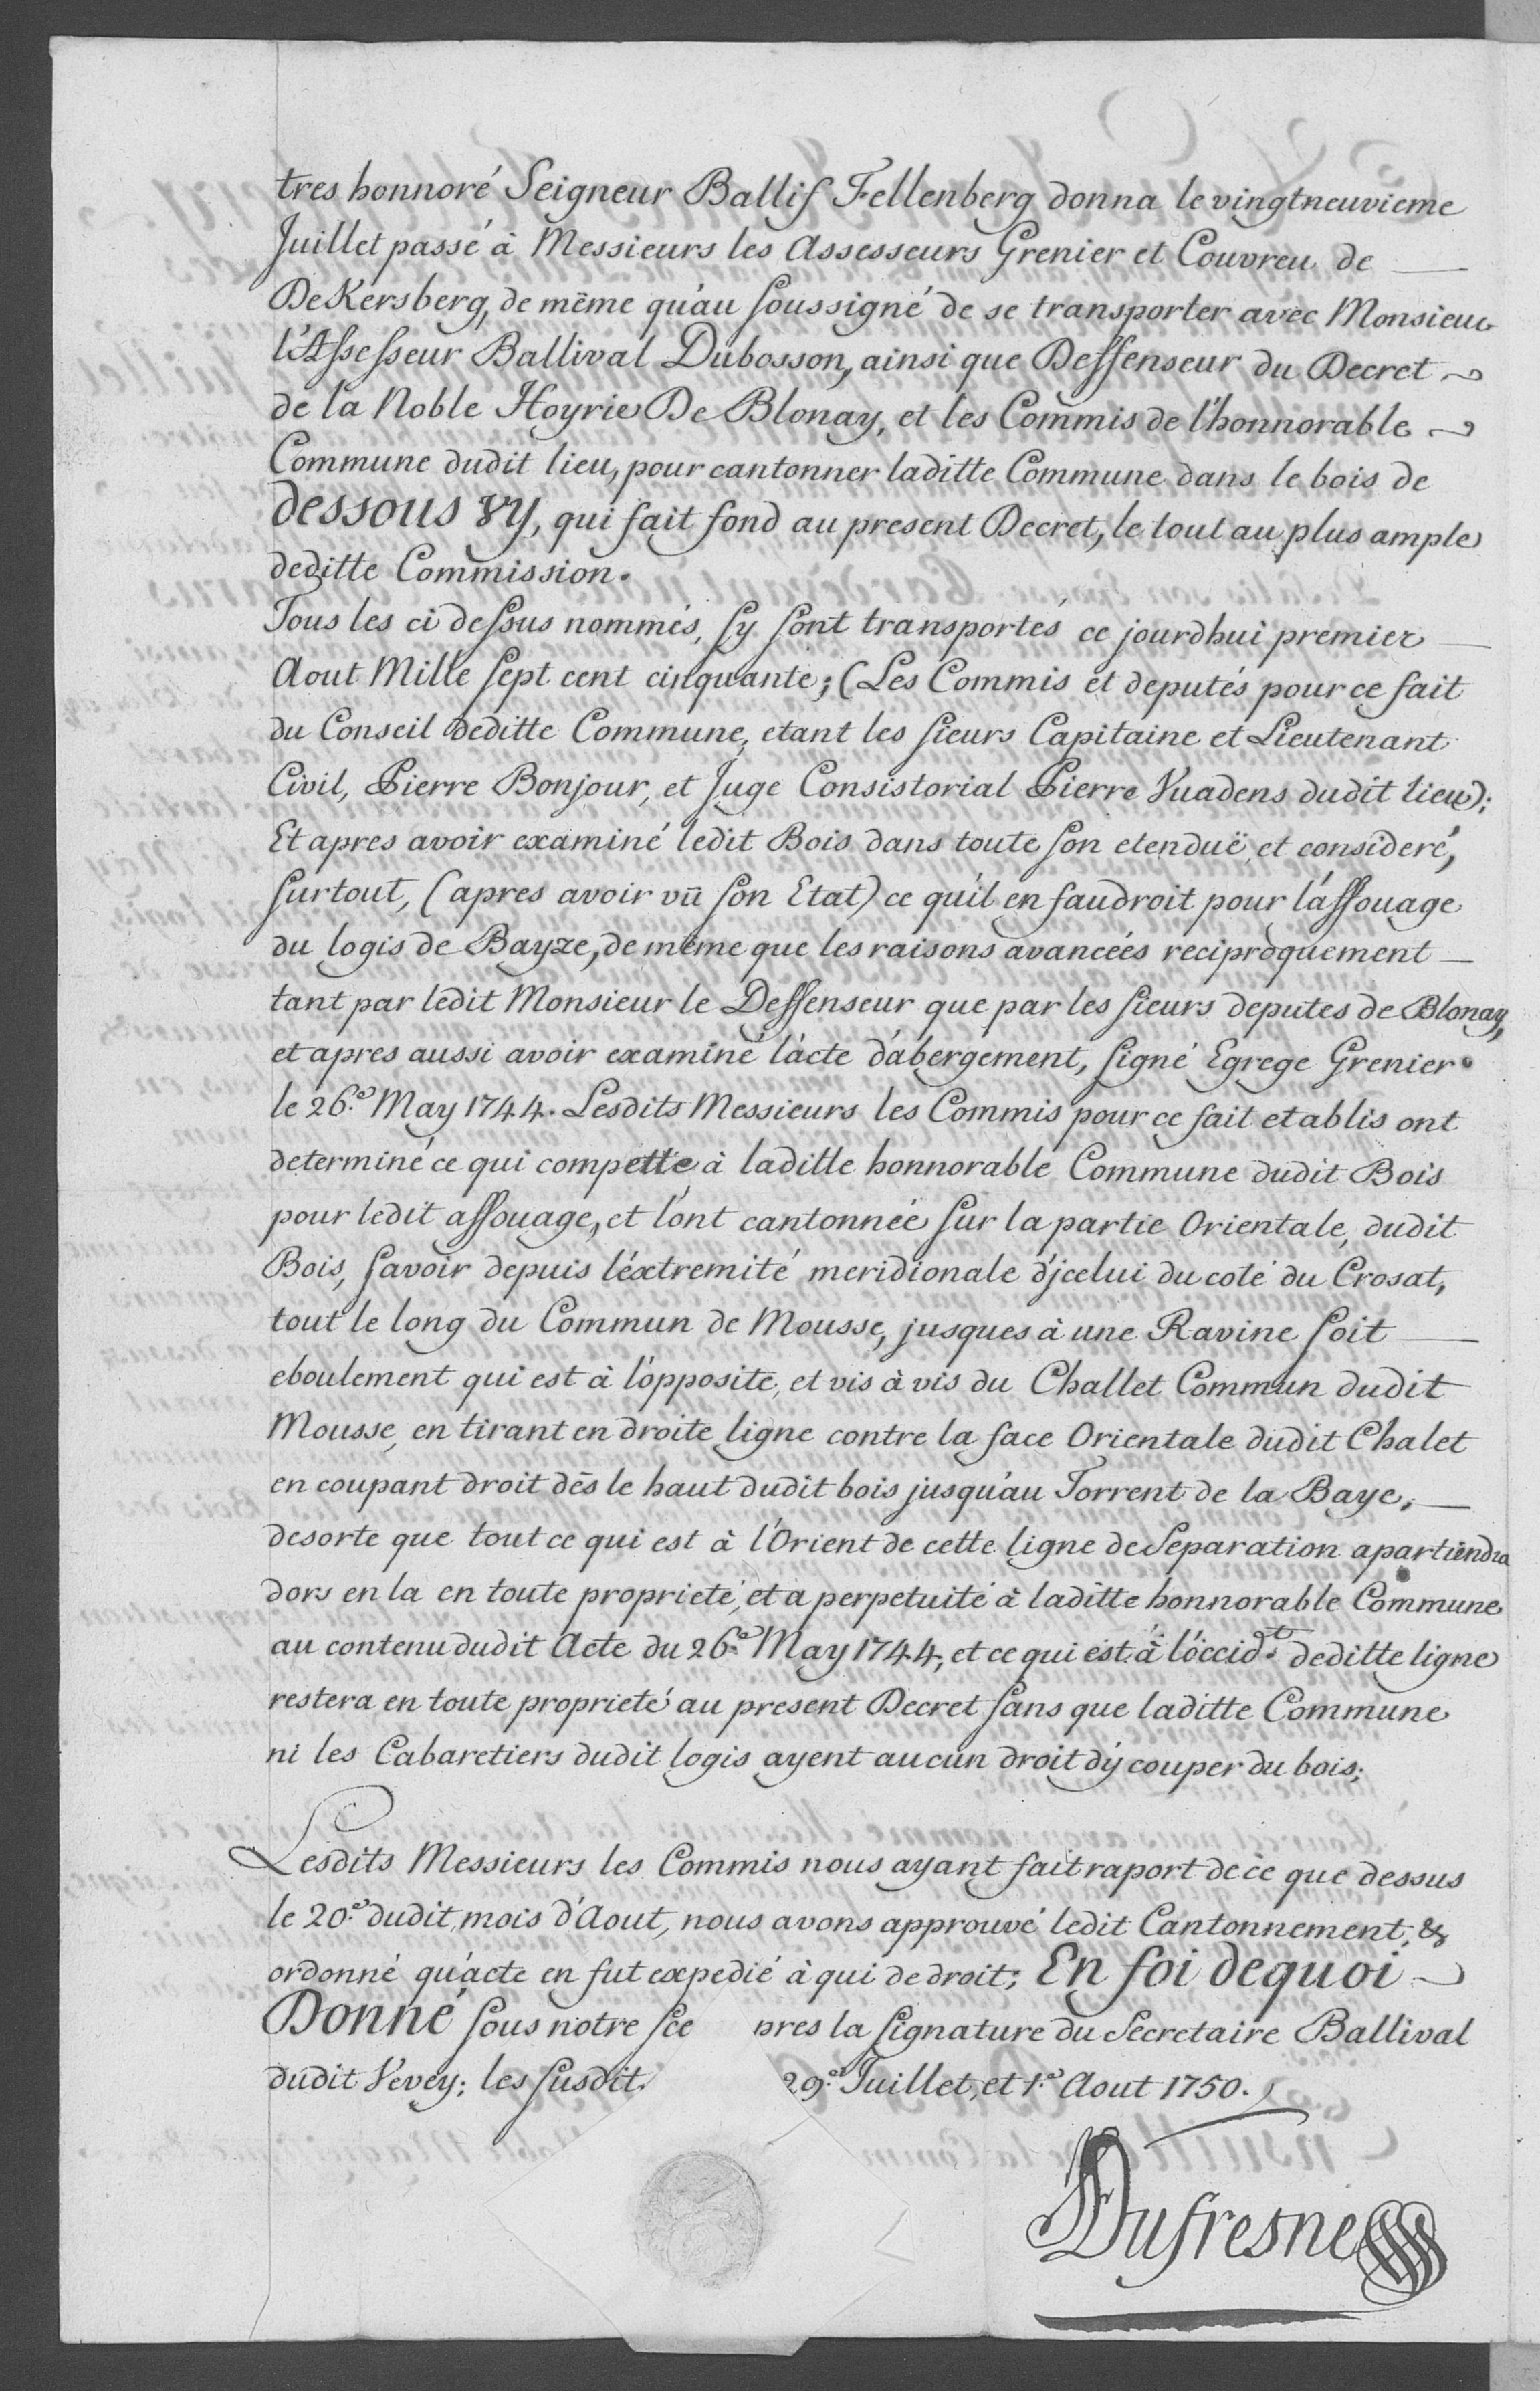 tres honnoré Seigneur Ballif Fellenberg donna le vingtneuvieme
Juillet passé à Messieurs les Assesseurs Grenier et Couvreu de
DeKersberg, de même qu'au soussigné de se transporter avec Monsieur
l'Assesseur Ballival Dubosson, ainsi que Deffenseur du Decret
de la Noble Hoyrie De Blonay, et les Commis de l'honnorable
Commune dudit lieu, pour cantonner laditte Commune dans le bois de
dessous vy, qui fait fond au present Decret, le tout au plus ample
deditte Commission.
Tous les ci dessus nommés, sy sont transportés ce jourdhui premier
Aout Mille sept cent cinquante; (Les Commis et deputés pour ce fait
du Conseil deditte Commune, etant les sieurs Capitaine et Lieutenant
Civil, Pierre Bonjour, et Juge Consistorial Pierre Vuadens dudit lieu);
Et apres avoir examiné ledit Bois dans toute son etenduë, et consideré,
surtout, (apres avoir vû son Etat) ce qu'il en faudroit pour l'affouage
du logis de Bayze, de même que les raisons avancées reciproquement
tant par ledit Monsieur le Deffenseur que par les sieurs deputés de Blonay,
et apres aussi avoir examiné l'acte d'abergement, signé Egrege Grenier
le 26.e May 1744. Lesdits Messieurs les Commis pour ce fait etablis ont
determiné ce qui compette à laditte honnorable Commune dudit Bois
pour ledit affouage, et l'ont cantonnée sur la partie Orientale, dudit
Bois, savoir depuis l'éxtremité meridionale d'jcelui du coté du Crosat,
tout le long du Commun de Mousse, jusques à une Ravine soit
eboulement qui est à l'opposite, et vis à vis du Challet Commun dudit
Mousse, en tirant en droite ligne contre la face Orientale dudit Chalet
en coupant droit dès le haut dudit bois jusqu'au Torrent de la Baye,
desorte que tout ce qui est à l'Orient de cette ligne de Separation apartiendra
dors en la en toute proprieté, et à perpetuité à laditte honnorable Commune
au contenu dudit Acte du 26.e May 1744, et ce qui est à l'óccid.t deditte ligne
restera en toute proprieté au present Decret sans que laditte Commune
ni les Cabaretiers dudit logis ayent aucun droit d'y couper du bois;
Lesdits Messieurs les Commis nous ayant fait raport de ce que dessus
le 20.e dudit mois d'Aout, nous avons approuvé ledit Cantonnement, &
ordonné qu'acte en fut expedié à qui de droit; En foi dequoi
Donné sous notre sce pres la signature du Secretaire Ballival
dudit Vevey; les susdit 29.e Juillet, et 1.e Aout 1750.
Dufresne